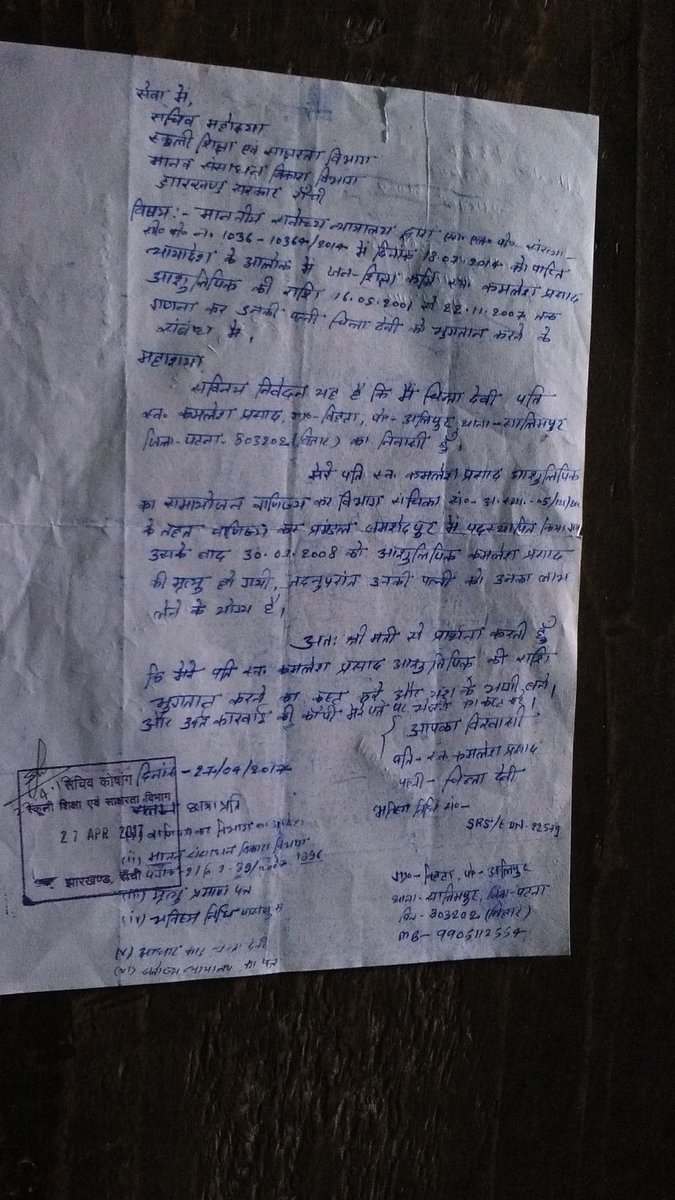 सेवा में,
सचिव महोदया
स्कूली शिक्षा एवं साक्षरता विभाग
मानव संसाधन विकास विभाग
झारखण्ड सरकार राँची
विषय:- माननीय सर्वोच्च न्यायालय द्वारा एस. एल. पी.
सी० नं. 1036-10364/2014 में दिनांक को पारित
न्यायादेश के आलोक में जन-शिक्षा कर्मी स्व. कमलेश प्रसाद
आशुलिपिक की राशि 16.05.2001 से 22.11.2007 तक
गणना कर उनकी पत्नी चिन्ता देवी को भुगतान करने के
संबंध में।
महाशया
सविनय निवेदन यह है कि मैं चिन्ता देवी पति
स्व. कमलेश प्रसाद, ग्रा०- पो०- अलिपुर, थाना- सालिमपुर
जिला- पटना- 803202 (बिहार) का निवासी हूँ।
मेरे पति स्व. कमलेश प्रसाद आशुलिपिक
का सामायोजन वाणिज्य कर विभाग संचिका सं०-
के तहत वाणिज्य कर प्रमंडल जमशेदपुर में पदस्थापित किया गया
उसके बाद 30.01.2008 को आशुलिपिक कमलेश प्रसाद
की मृत्यु हो गयी, तदनुपरांत उनकी पत्नी को उनका लाभ
लेने के योग्य है।
अतः श्रीमती से प्रार्थना करती हूँ
कि मेरे पति स्व. कमलेश प्रसाद आशुलिपिक की राशि
भुगतान करने का कष्ट करें और यश के भागी बने।
और कारवाई की कॉपी मेरे पते पर भेजने का कष्ट करें।
आपका विश्वासी
पति- स्व. कमलेश प्रसाद
पत्नी- चिन्ता देवी
भविष्य निधि सं०-
SRS/EDN-22519
ग्रा०- पो०- अलिपुर
थाना- सालिमपुर, जिला-पटना
पिन- 803202 (बिहार)
MB- 9905112554
दिनांक -27/04/2017
छाया प्रति
(i) वाणिज्य कर विभाग का आदेश
(ii) मानव संसाधन विकास विभाग
(iii) मृत्यु प्रमाण पत्र
(iv) भविष्य निधि
(v) आधार कार्ड चिन्ता देवी
(vi) सर्वोच्च न्यायालय का पत्र
सचिव कोषांग
स्कूली शिक्षा एवं साक्षरता विभाग
27 APR 2017
झारखण्ड, राँची